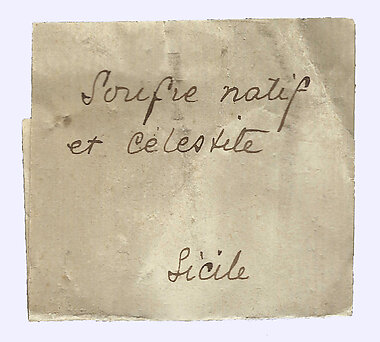 Soufre natif
et célestite
Sicile